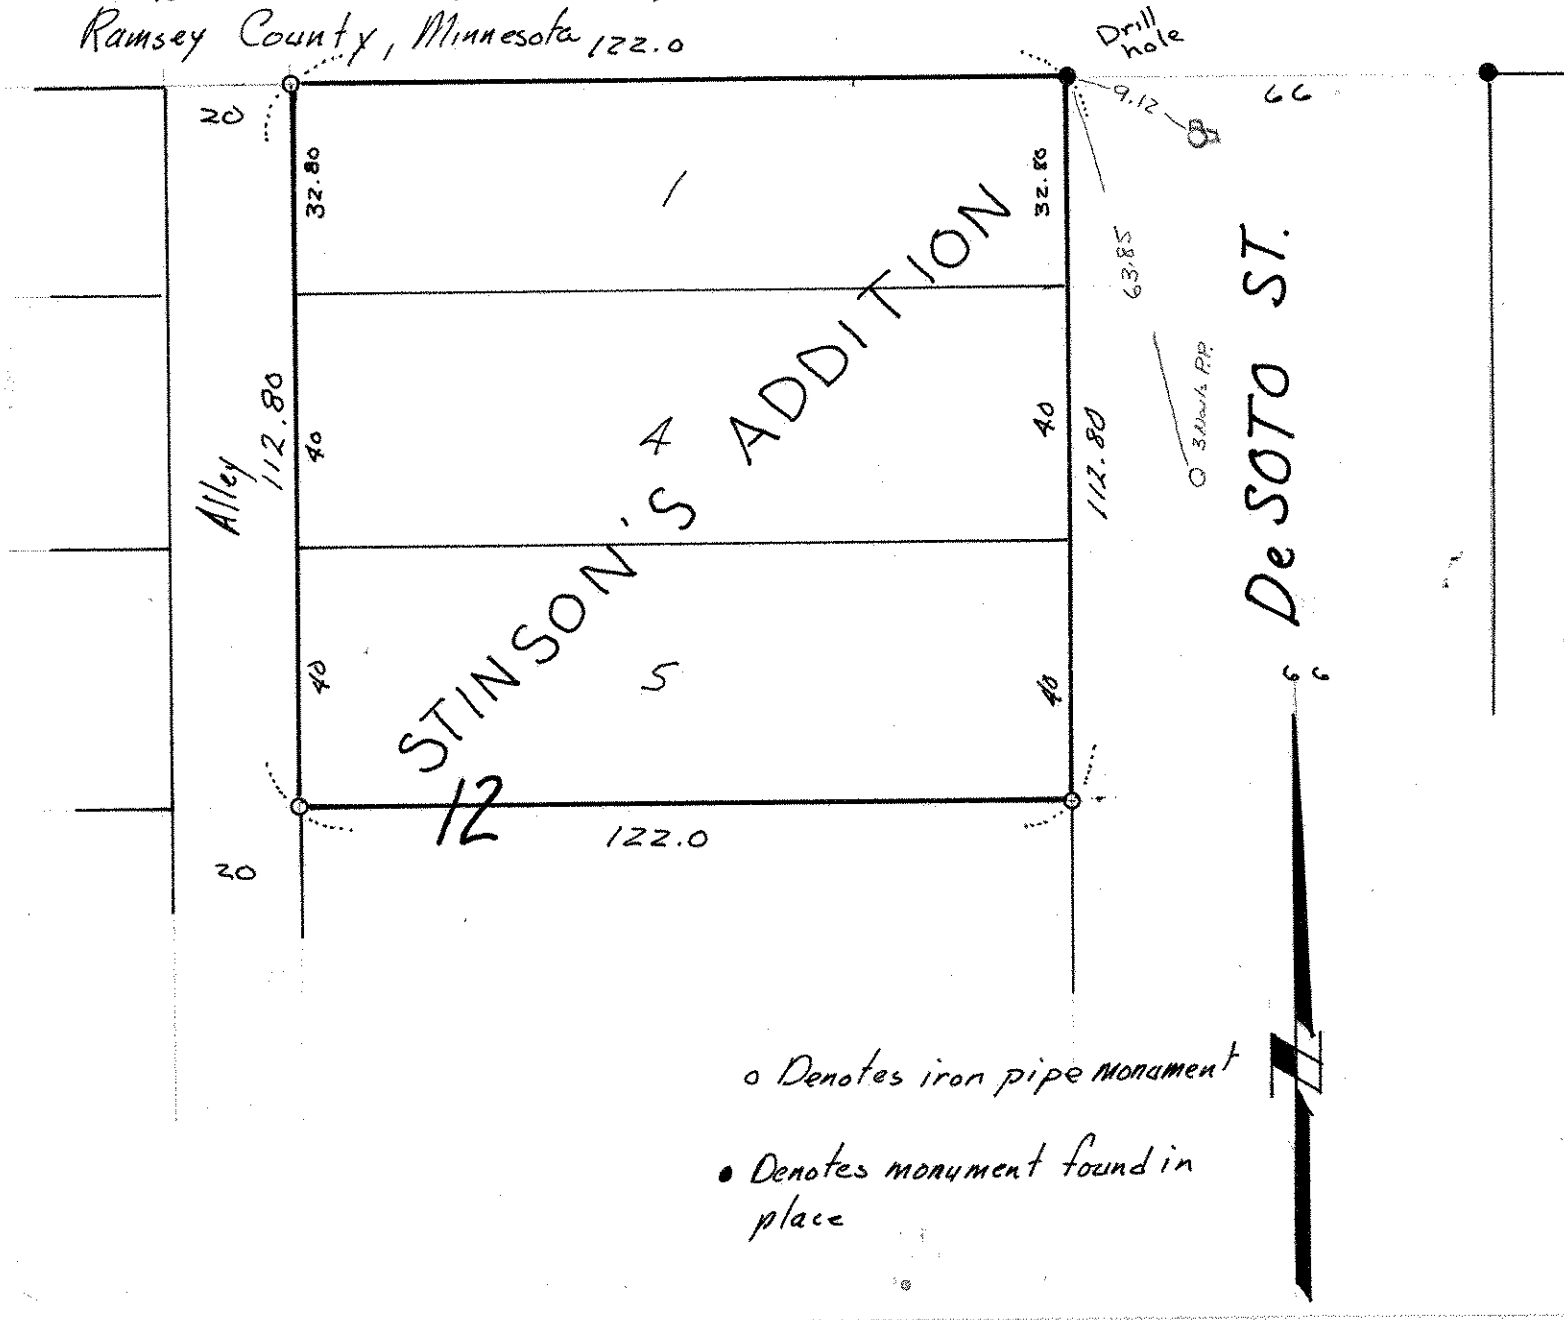 Ramsey County, Minnesota 122.0
Drill
hole
20
9.12
66
32.80
1
32.80
63.85
De SOTO ST.
STINSON'S ADDITION
Alley
112.80
40
4
40
112.80
3 Nails P.P.
40
5
40
66
12
122.0
20
o Denotes iron pipe monument
• Denotes monument found in
place